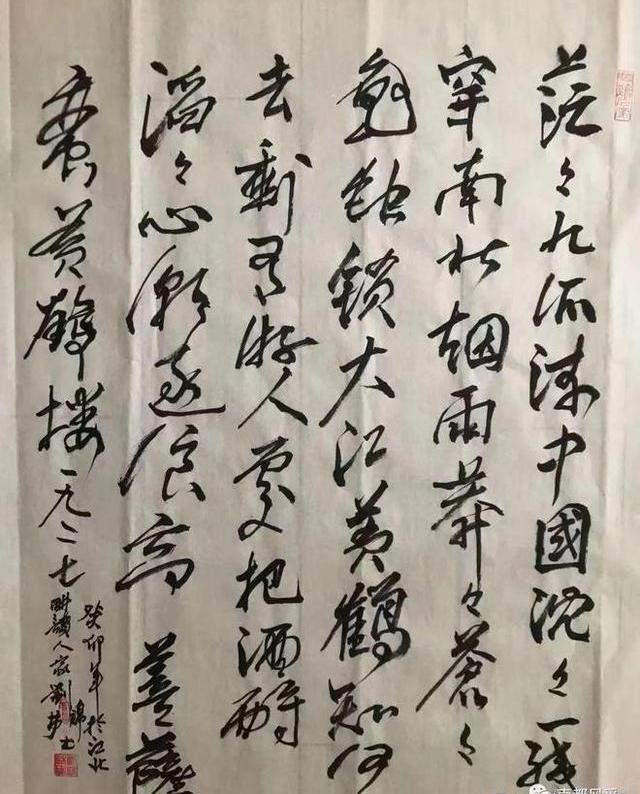 茫々九派流中國沈々一线
穿南北烟雨莽々蒼々
龟蛇鎖大江黄鶴知何
去剩有游人处把酒酹
滔々心潮逐浪高 菩薩
蛮黄鶴楼一九二七
癸卯年於江北
人家